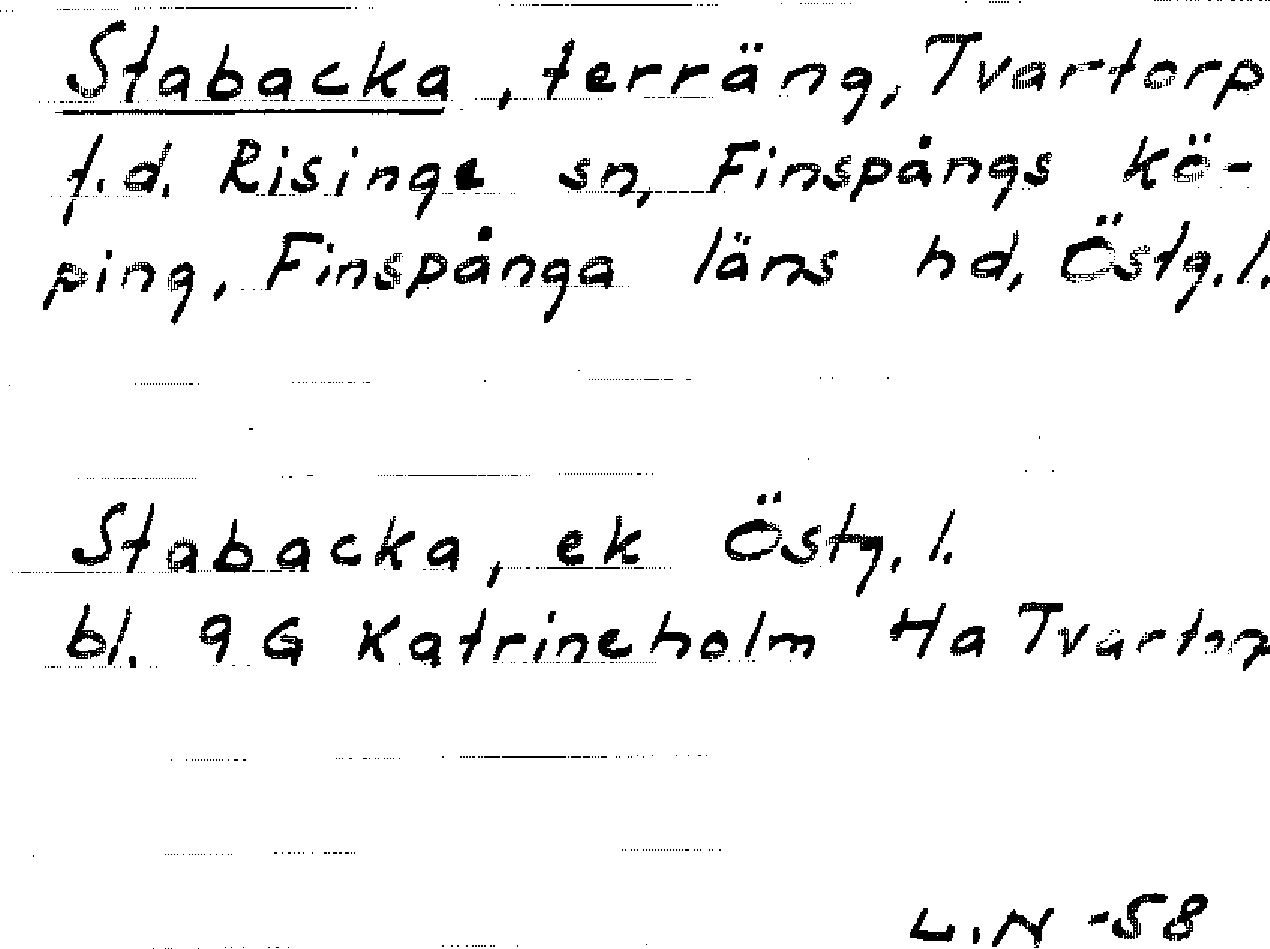 Stabacka, terräng, Tvartorp
f.d. Risinge sn, Finspångs kö-
ping, Finspånga läns hd, Östg.l.
Stabacka, ek Östg.l.
bl. 9 G Katrineholm 4a Tvartorp
L.N -58